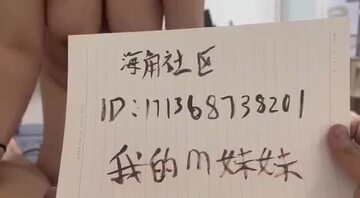 海角社区
ID:171368738201
我的m妹妹